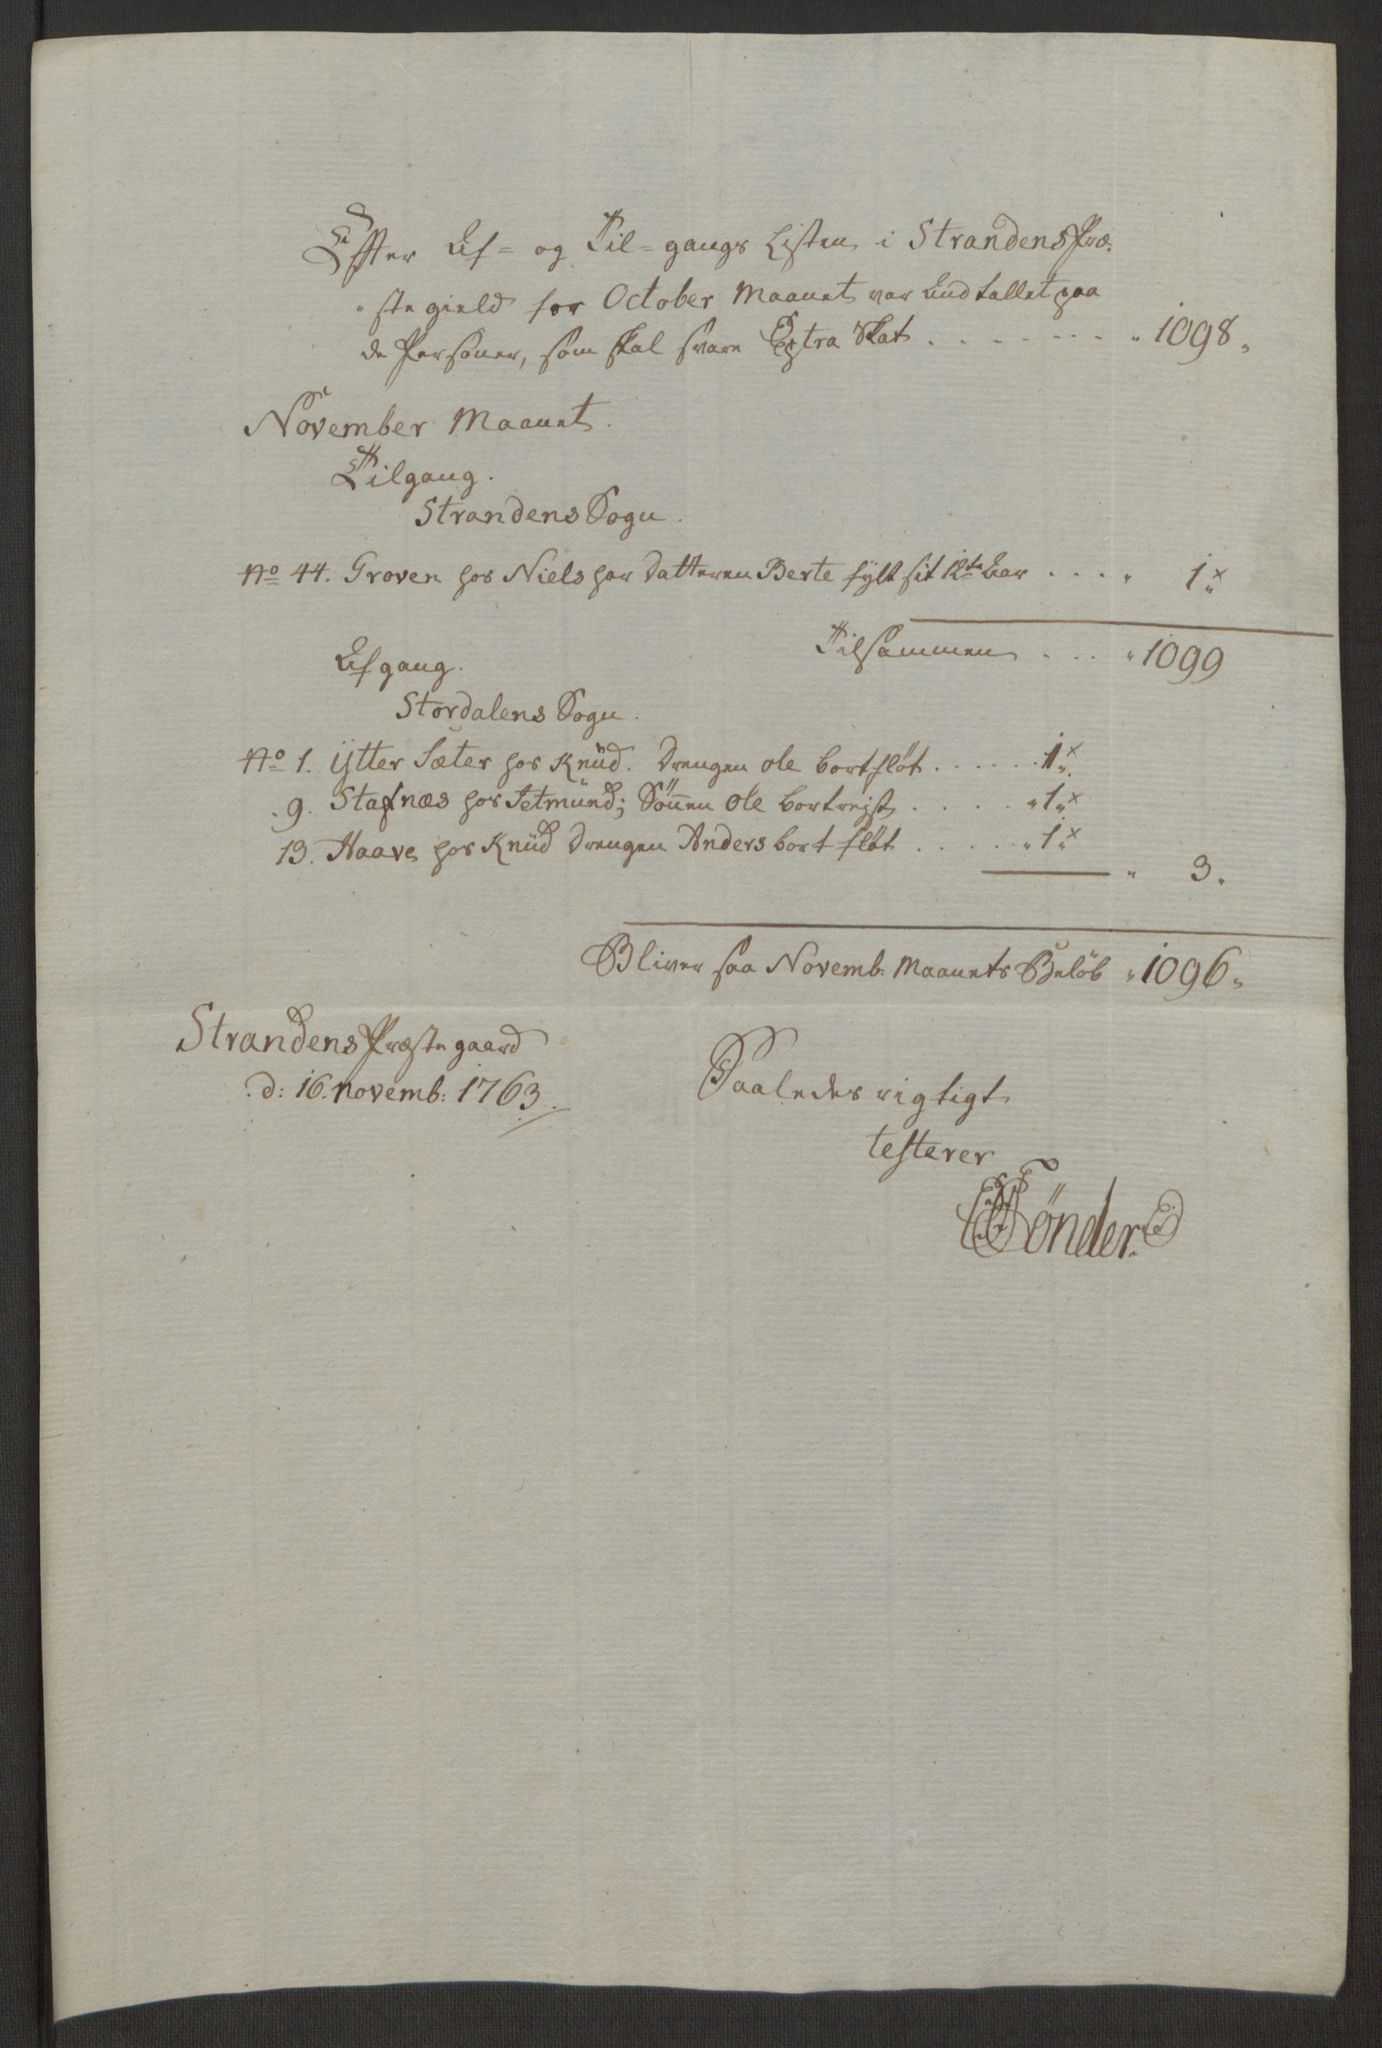 Effter Af= og Til=gangs Listen i Strandens Præ=
stegield for October Maanet var Andtallet paa
de Personer, som skal svare Extra Skat . . . . . . . . 1098 „
November Maanet.
Tilgang.
Strandens Sogn.
No 44. Groven hos Niels har datteren Berte fylt sit 12te Aar . . . . „ 1 „
Tilsammen . . . „ 1099
Afgang.
Stordalens Sogn.
No 1. Ytter Sæter hos Knud. drengen Ole bortfløt . . . . . . 1 „
9. Stafnæs hos Jetmund; Sönnen Ole bortrejst . . . . „ 1 „
13. Haave hos Knud drengen Anders bortfløt . . . . . „ 1 „
„ 3 „
Bliver saa Novemb: Maanets Beløb „ 1096 „
Strandens Præstegaard
d: 16. novemb: 1763.
Saaledes rigtigt
testerer
Tönder.